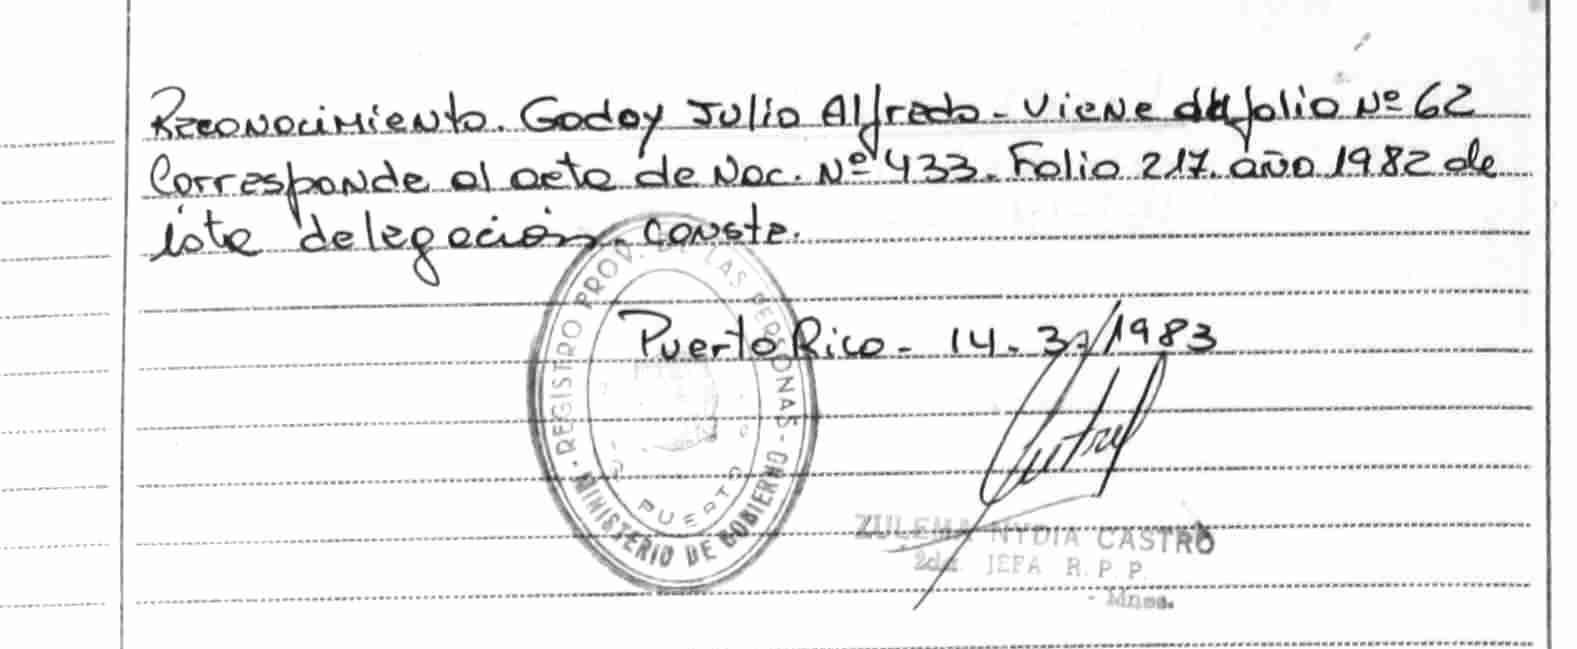 Reconocimiento. Godoy Julio Alfredo - Viene del folio Nº 62
Corresponde al acta de Nac. Nº 433. Folio 217. año 1982 de
ésta delegación. Conste.
REGISTRO PROV. DE LAS PERSONAS - MINISTERIO DE GOBIERNO -
PUERTO
Puerto Rico - 14 - 3 - 1983
ZULEMA NYDIA CASTRO
2da. JEFA R. P. P.
- Mnes.